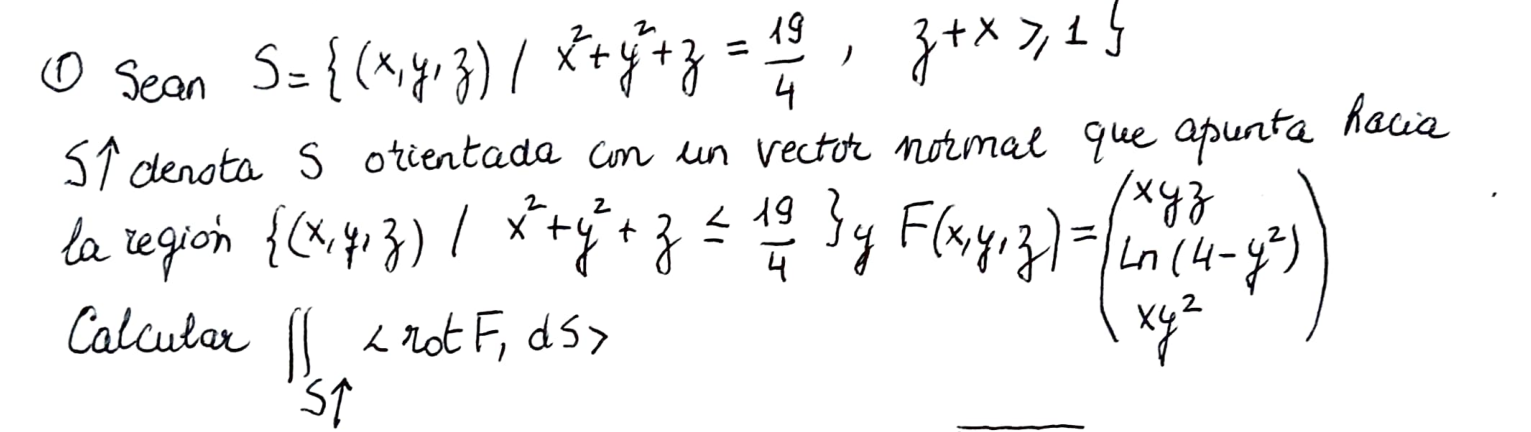 ① Sean S={(x,y,z) / x²+y²+z = 19/4 , z+x ⩾ 1}
S↑ denota S orientada con un vector normal que apunta hacia
la región {(x,y,z) / x²+y²+z ≤ 19/4 } y F(x,y,z)=(xyz Ln(4-y²) xy²)
Calcular ∬S↑ <rot F, dS>